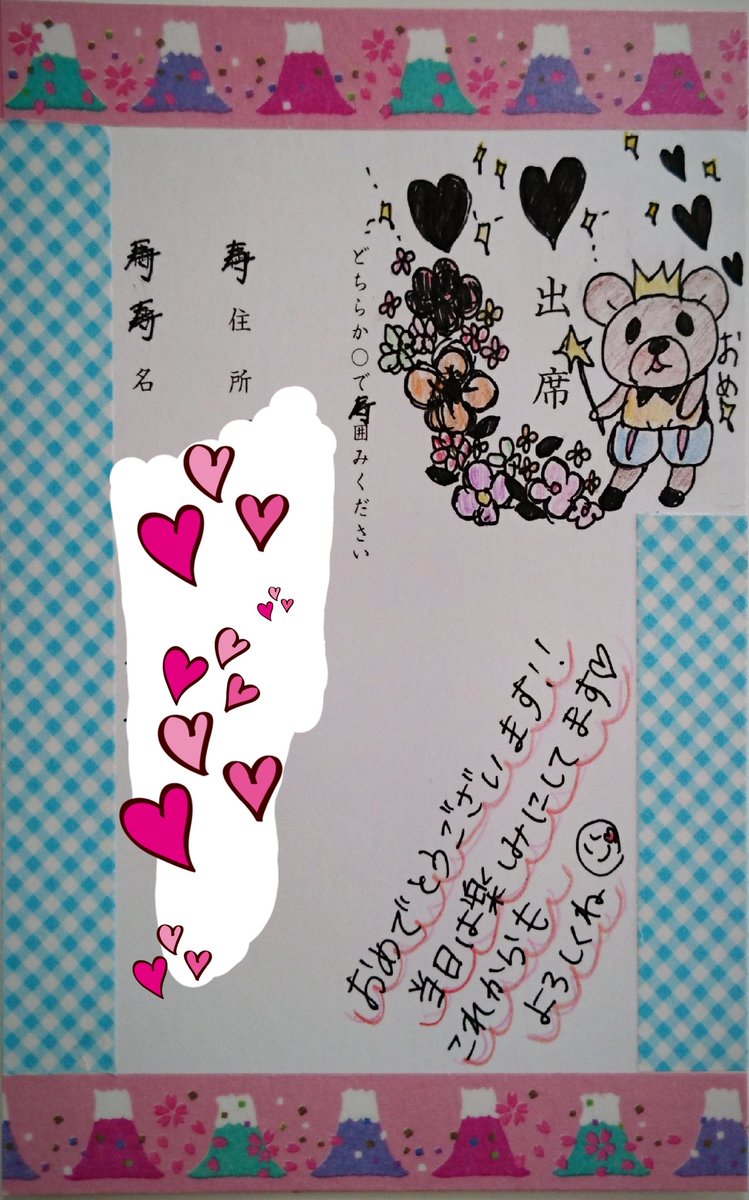 おめ
出席
どちらか○で寿囲みください
寿住所
寿寿名
おめでとうございます!!
当日は楽しみにしてます♡
これからも
よろしくね